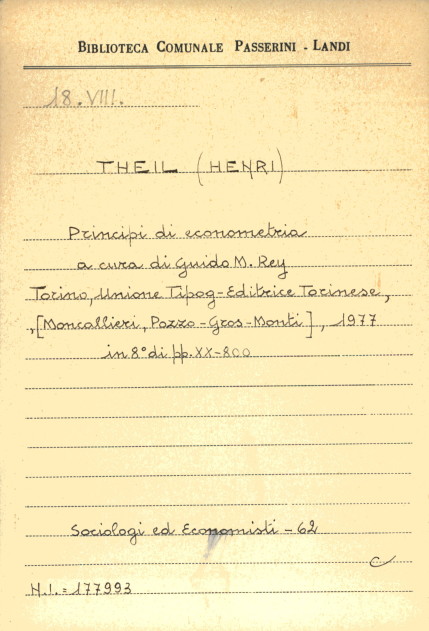 BIBLIOTECA COMUNALE PASSERINI - LANDI
18. VIII.
THEIL (HENRI)
Principi di econometria
a cura di Guido M. Rey
Torino, Unione Tipog-Editrice Torinese,
,[Moncallieri, Pozzo-Gros-Monti], 1977
in 8° di pp. XX-800
Sociologi ed Economisti - 62
C
N.I. = 177993